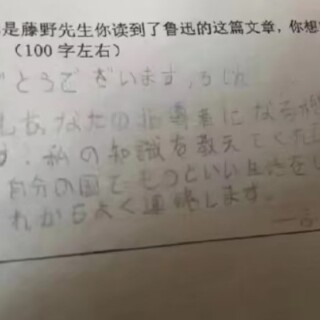 是藤野先生你读到了鲁迅的这篇文章，你想
（100字左右）
とうございます，ろじん
あなたの指導者になる
私の知識を教えてくれ
自分の国でもっといい生活をし
れからよく連絡します。